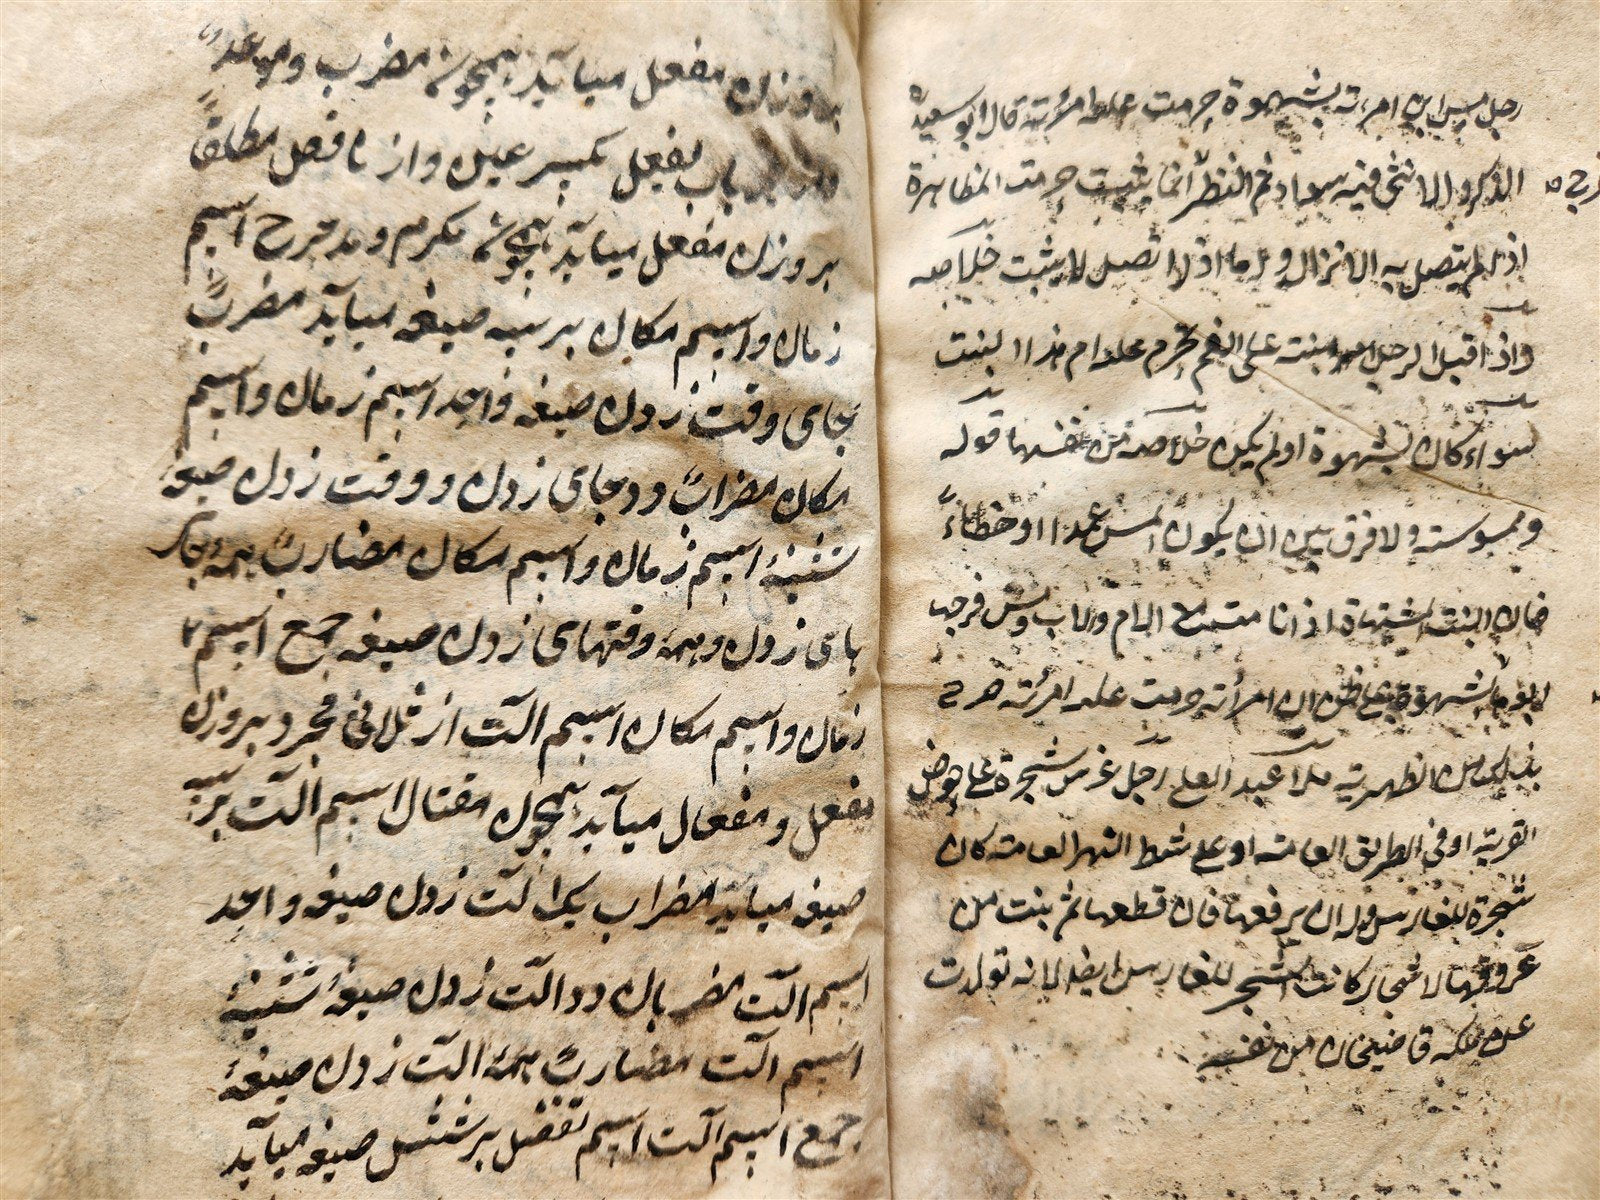 رجل مس ابن امرءته بشهوة حرمت عليه امرءته قال ابو سعيد
الذكر والانثى فيه سواء ثم النظر انما يثبت حرمت المظاهرة
اذا لم يتصل به الانزال و اما اذا اتصل لا يثبت خلاصه
واذا قبل الرجل بنته على الفم تحرم عليه ام هذا البنت
سواء كان بشهوة او لم يكن خلاصه من نفسها قوله
وممسوسته ولا فرق بين ان يكون المس عمدا او خطاءً
فان البنت المشتهاة اذا نامت مع الام والاب ومس فرجها
بشهوة ان امرأته حرمت عليه امرئته
من الظهيرية ملا عبد العلى رجل غرس شجرة على حوض
القرية او فى الطريق العامته او على شط النهر العامته كان
شجرة للغارس وله ان يرفعها فان قطعها ثم بنت من
عروقها الاشجار كانت الشجر للغارس ايضا لانه تولدت
من ملكه قاضيخان من نفسه
بر وزن مفعل ميآيد همچون مضرب وموعد
باب يفعل بكسر عين واز ناقص مطلقاً
بر وزن مفعل ميآيد همچون مكرم ومدحرج اسم
زمان واسم مكان بر سه صيغه ميآيد مضربٌ
جاى وقت زدن صيغه واحد اسم زمان واسم
مكان مضرابٌ دو جاى زدن و وقت زدن صيغهٔ
تثنيهٔ اسم زمان واسم مكان مضاربٌ همهٔ جاى
هاى زدن وهمهٔ وقتهاى زدن صيغه جمع اسم
زمان واسم مكان اسم الت از ثلاثى مجرد بر وزن
مفعل و مفعال ميآيد همچون مفتال اسم الت بر سه
صيغه ميآيد مضراب يك الت زدن صيغه واحد
اسم الت مضربان دو الت زدن صيغهٔ تثنيهٔ
اسم الت مضاربٌ همهٔ الت زدن صيغهٔ
جمع اسم الت اسم تفضل بر شش صيغه ميآيد